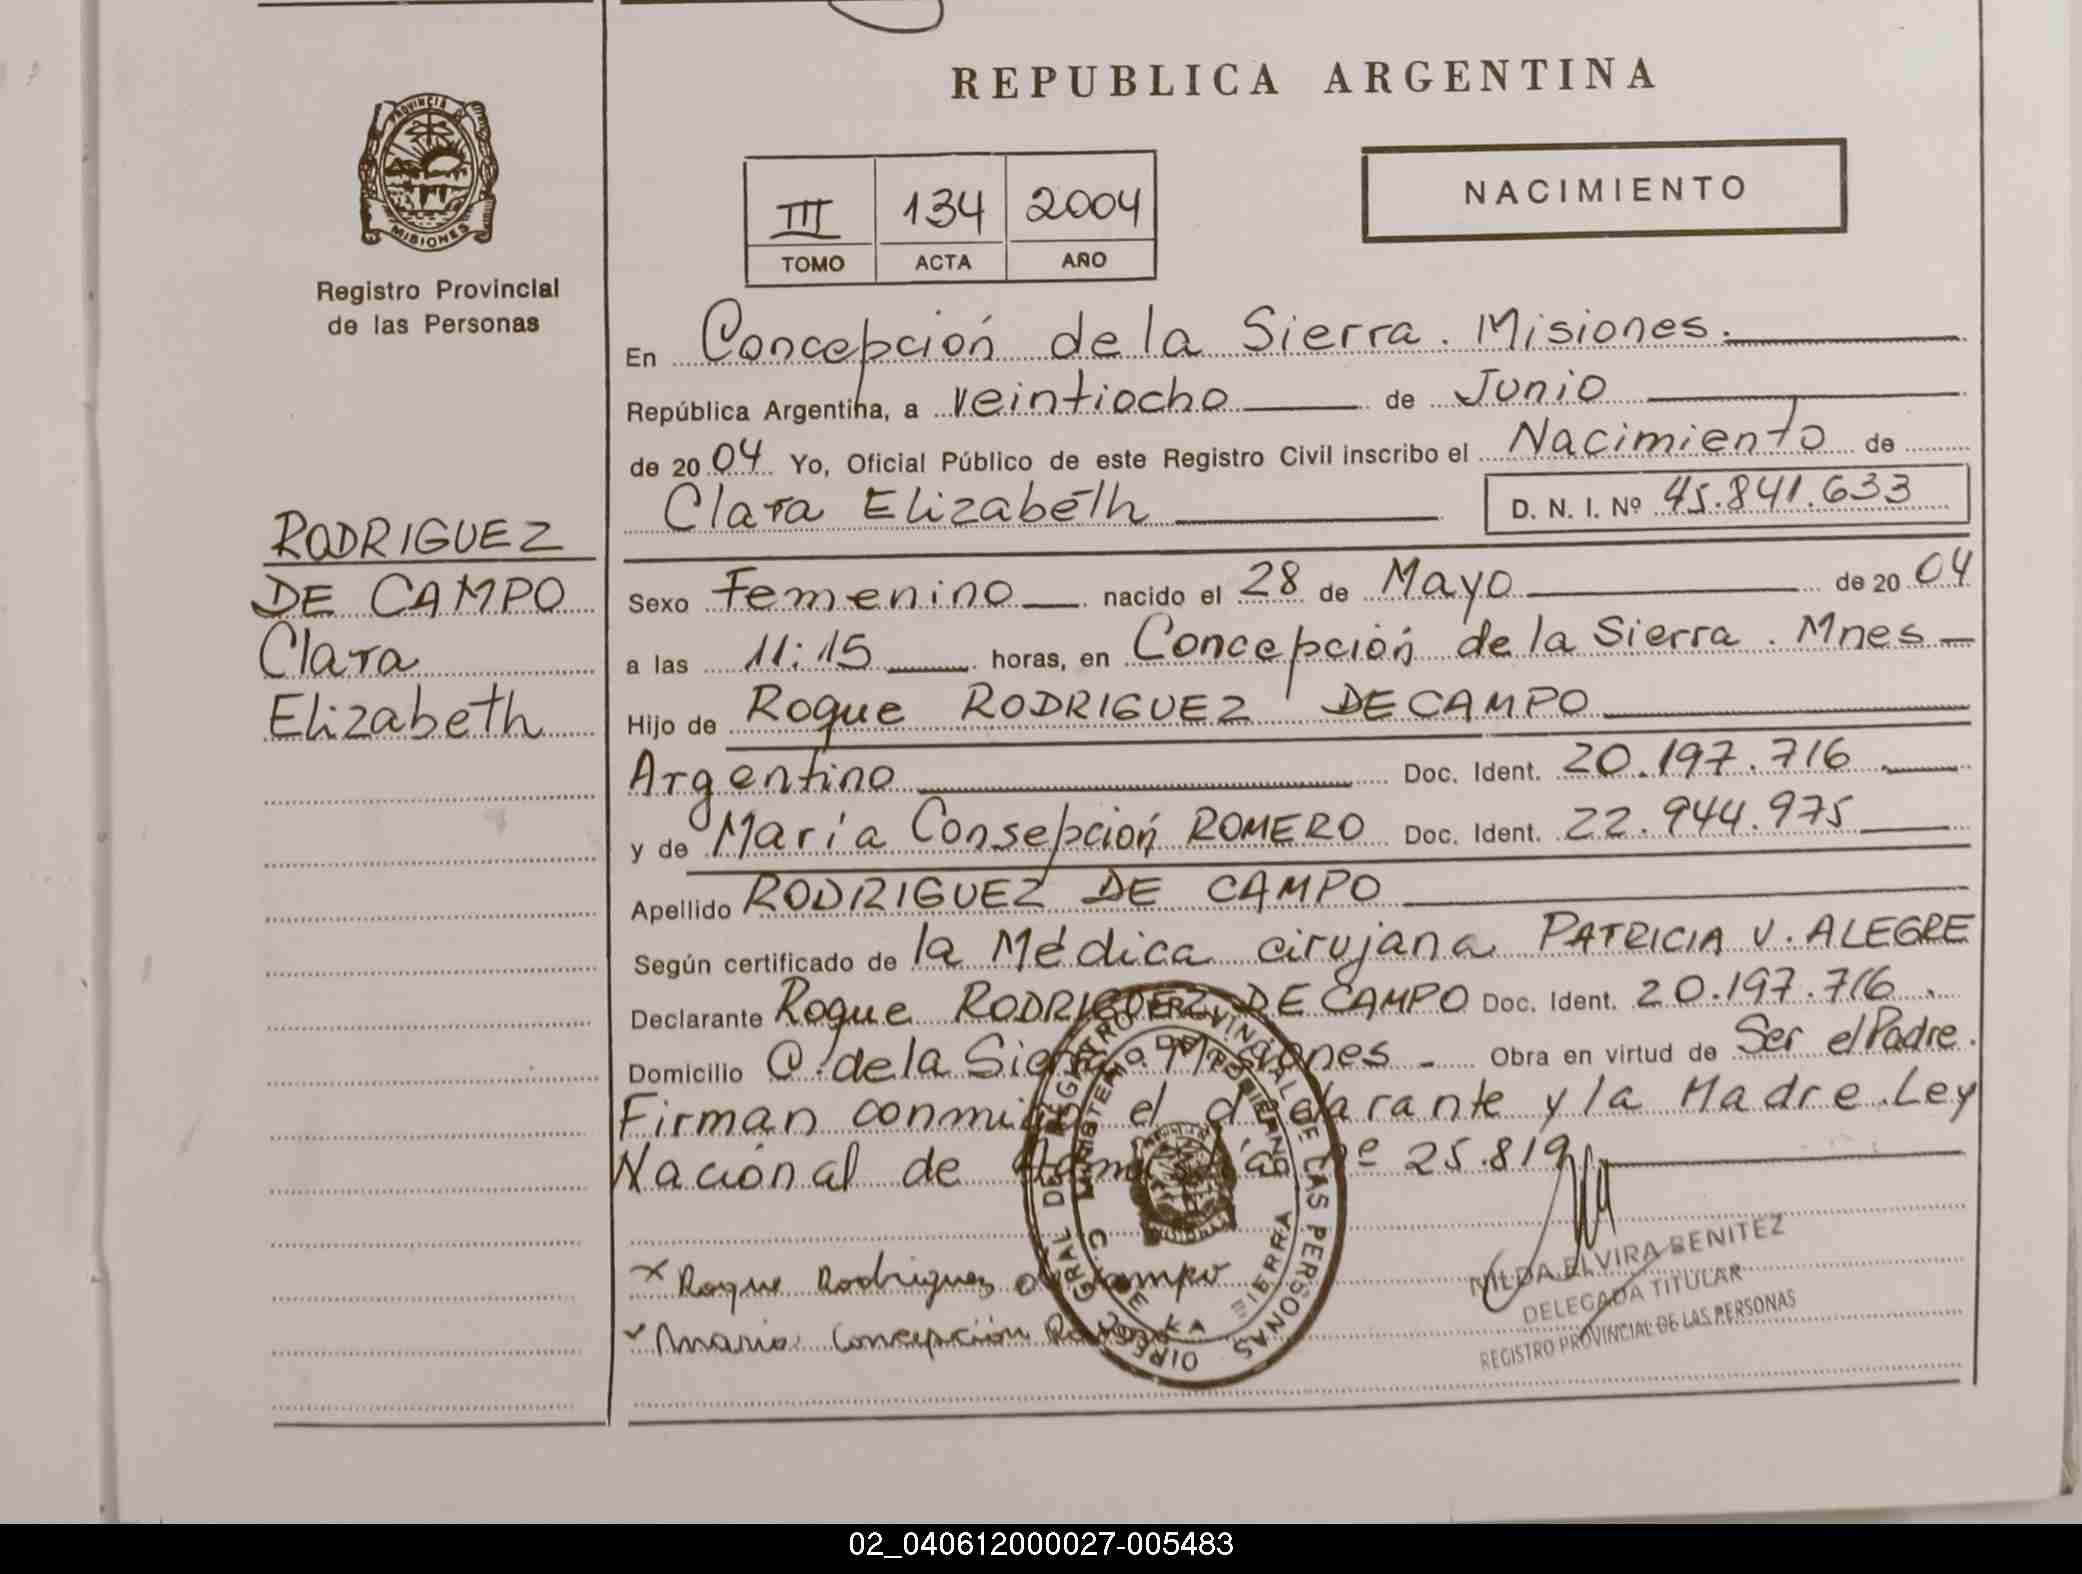 REPUBLICA ARGENTINA
PROVINCIA
MISIONES
Registro Provincial
de las Personas
III 134 2004
TOMO ACTA AÑO
NACIMIENTO
En Concepción de la Sierra. Misiones.
República Argentina, a veintiocho de Junio
de 2004 Yo, Oficial Público de este Registro Civil inscribo el Nacimiento de
Clara Elizabeth D. N. I. Nº 45.841.633
RODRIGUEZ
DE CAMPO
Clara
Elizabeth
Sexo Femenino nacido el 28 de Mayo de 2004
a las 11:15 horas, en Concepción de la Sierra. Mnes
Hijo de Roque RODRIGUEZ DE CAMPO
Argentino Doc. Ident. 20.197.716
y de María Consepción ROMERO Doc. Ident. 22.944.975
Apellido RODRIGUEZ DE CAMPO
Según certificado de la Médica cirujana PATRICIA V. ALEGRE
Declarante Roque RODRIGUEZ DE CAMPO Doc. Ident. 20.197.716.
Domicilio C. de la Sierra. Misiones - Obra en virtud de Ser el Padre.
Firman conmigo el declarante y la Madre. Ley
Nacional de Nº 25.819
x Roque Rodriguez de Campo
Maria Concepción Romero
DIREC GRAL DEL REGISTRO PROVINCIAL DE LAS PERSONAS
MINISTERIO DE GOBIERNO
C. DE LA SIERRA
NILDA ELVIRA BENITEZ
DELEGADA TITULAR
REGISTRO PROVINCIAL DE LAS PERSONAS
02_040612000027-005483